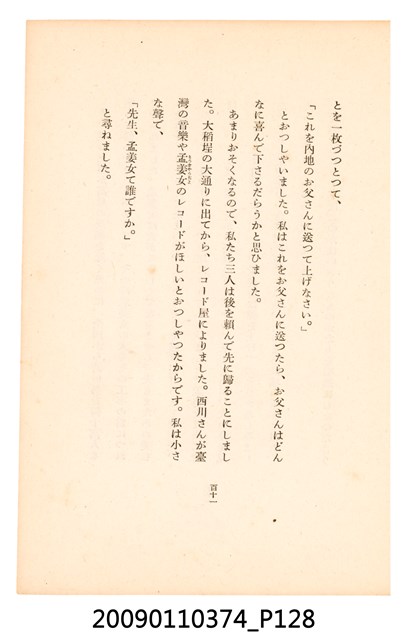 とを一枚づつとつて、
「これを内地のお父さんに送つて上げなさい。」
とおつしやいました。私はこれをお父さんに送つたら、お父さんはどん
なに喜んで下さるだらうかと思ひました。
あまりおそくなるので、私たち三人は後を頼んで先に歸ることにしまし
た。大稻埕の大通りに出てから、レコード屋によりました。西川さんが臺
灣の音樂や孟姜女のレコードがほしいとおつしやつたからです。私は小さ
な聲で、
「先生、孟姜女て誰ですか。」
と尋ねました。
百十一
20090110374_P128